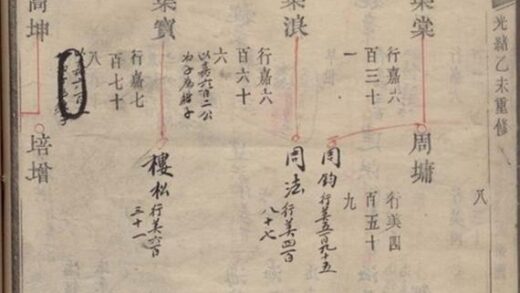 光緒乙未重修
八
棠
行嘉六
百三十
一
周墉
行美四
百五十
九
周鈞行美五百九十五
浪
行嘉六
百六十
六
以嘉六百二公
為子
周法行美四百
八十七
寶
行嘉七
百七十
八
樓松行美六百
三十一
坤
培增